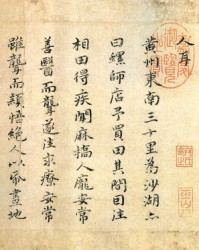 黄州東南三十里為沙湖亦
曰螺師店予買田其間因往
相田得疾聞麻橋人龐安常
善醫而聾遂往求療安常
雖聾而穎悟絕人以帋畫地